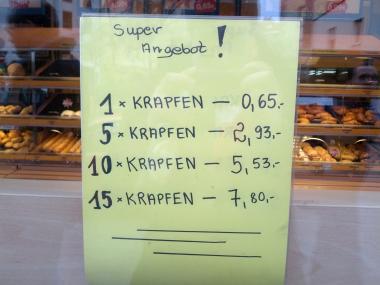 Super
Angebot !
1 x KRAPFEN — 0,65.-
5 x KRAPFEN — 2,93.-
10 x KRAPFEN — 5,53.-
15 x KRAPFEN — 7,80.-